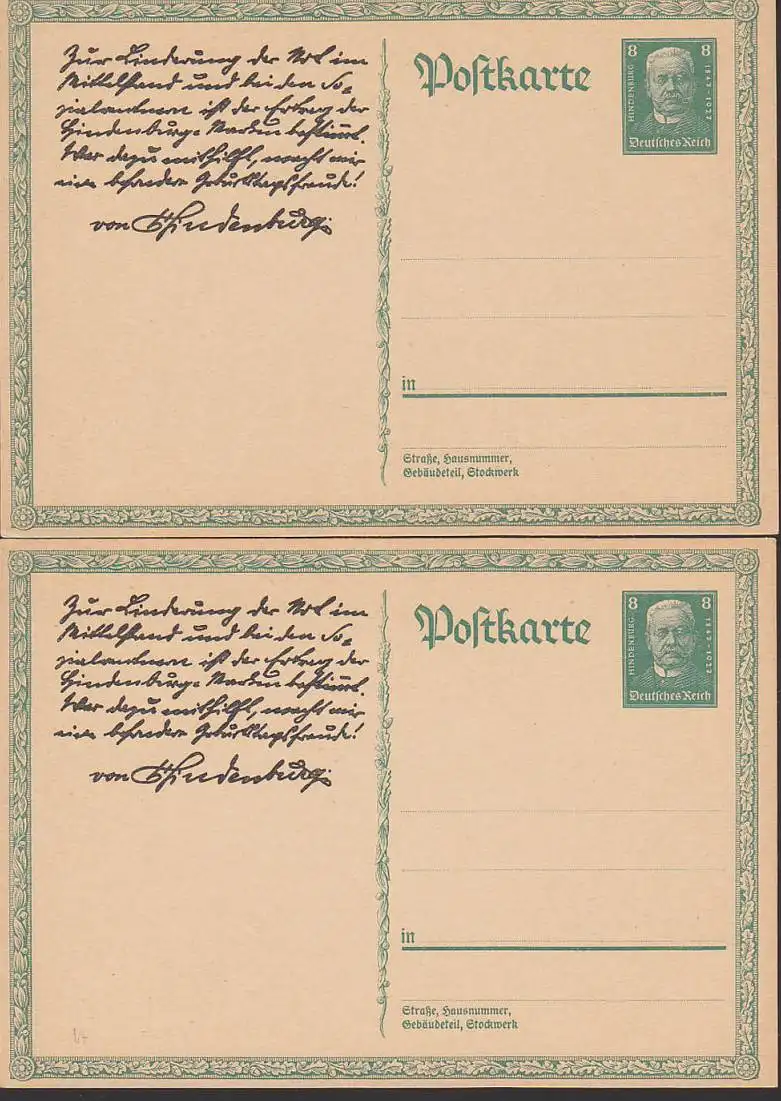 Zur Linderung der Not im
Mittelstand und bei den So-
zialrentnern ist der Ertrag der
Hindenburg-Marken bestimmt.
Wer dazu mithilft, macht mir
eine besondere Geburtstagsfreude!
von Hindenburg
Postkarte
8 8
HINDENBURG
1847-1927
Deutsches Reich
in
Straße, Hausnummer,
Gebäudeteil, Stockwerk
Zur Linderung der Not im
Mittelstand und bei den So-
zialrentnern ist der Ertrag der
Hindenburg-Marken bestimmt.
Wer dazu mithilft, macht mir
eine besondere Geburtstagsfreude!
von Hindenburg
Postkarte
8 8
HINDENBURG
1847-1927
Deutsches Reich
in
Straße, Hausnummer,
Gebäudeteil, Stockwerk